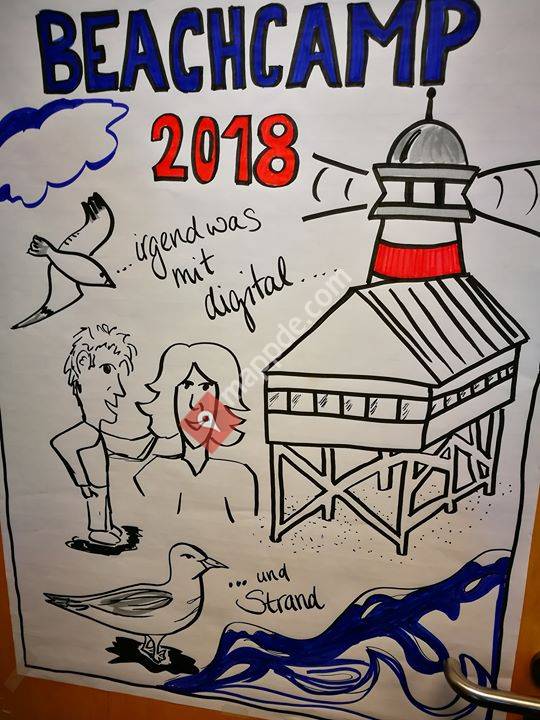 BEACHCAMP
2018
...irgendwas
mit
digital....
mappde.com
...und
Strand